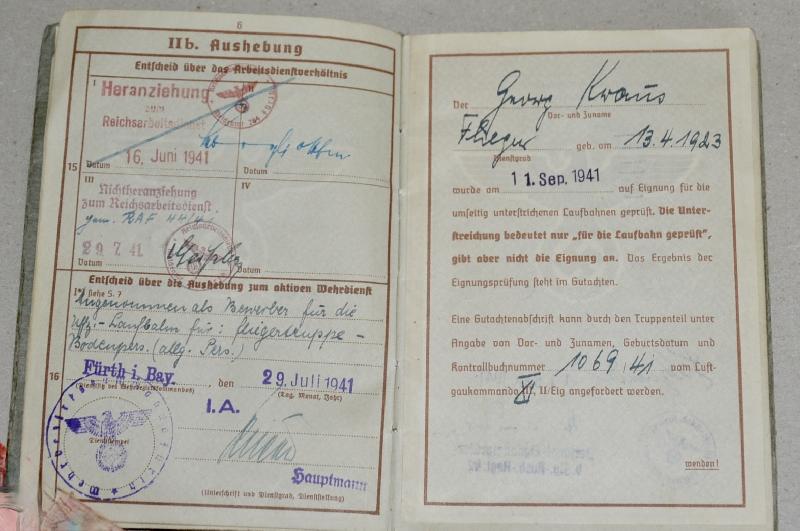 6
IIb. Aushebung
Entscheid über das Arbeitsdienstverhältnis
I
II
Heranziehung
zum
Reichsarbeitsdienst
16. Juni 1941
15
Datum
Datum
III
IV
Nichtheranziehung
zum Reichsarbeitsdienst.
gem. RAF 44/41
29.7.41.
Datum
Datum
Entscheid über die Aushebung zum aktiven Wehrdienst
I*) siehe S. 7
Angenommen als Bewerber für die
Uffz.-Laufbahn für: fliegertruppe-
Bodenpers. (allg. Pers.)
Fürth i. Bay., den 29. Juli 1941
16
(Tag, Monat, Jahr)
I.A.
Dienststempel
Hauptmann
(Unterschrift und Dienstgrad, Dienststellung)
Der Georg Kraus
Vor- und Zuname
Flieger geb. am 13.4.1923
Dienstgrad
wurde am 11. Sep. 1941 auf Eignung für die
umseitig unterstrichenen Laufbahnen geprüft. Die Unter-
streichung bedeutet nur „für die Laufbahn geprüft",
gibt aber nicht die Eignung an. Das Ergebnis der
Eignungsprüfung steht im Gutachten.
Eine Gutachtenabschrift kann durch den Truppenteil unter
Angabe von Vor- und Zunamen, Geburtsdatum und
Kontrollbuchnummer 1069/41 vom Luft-
gaukommando XII, II/Eig angefordert werden.
wenden!